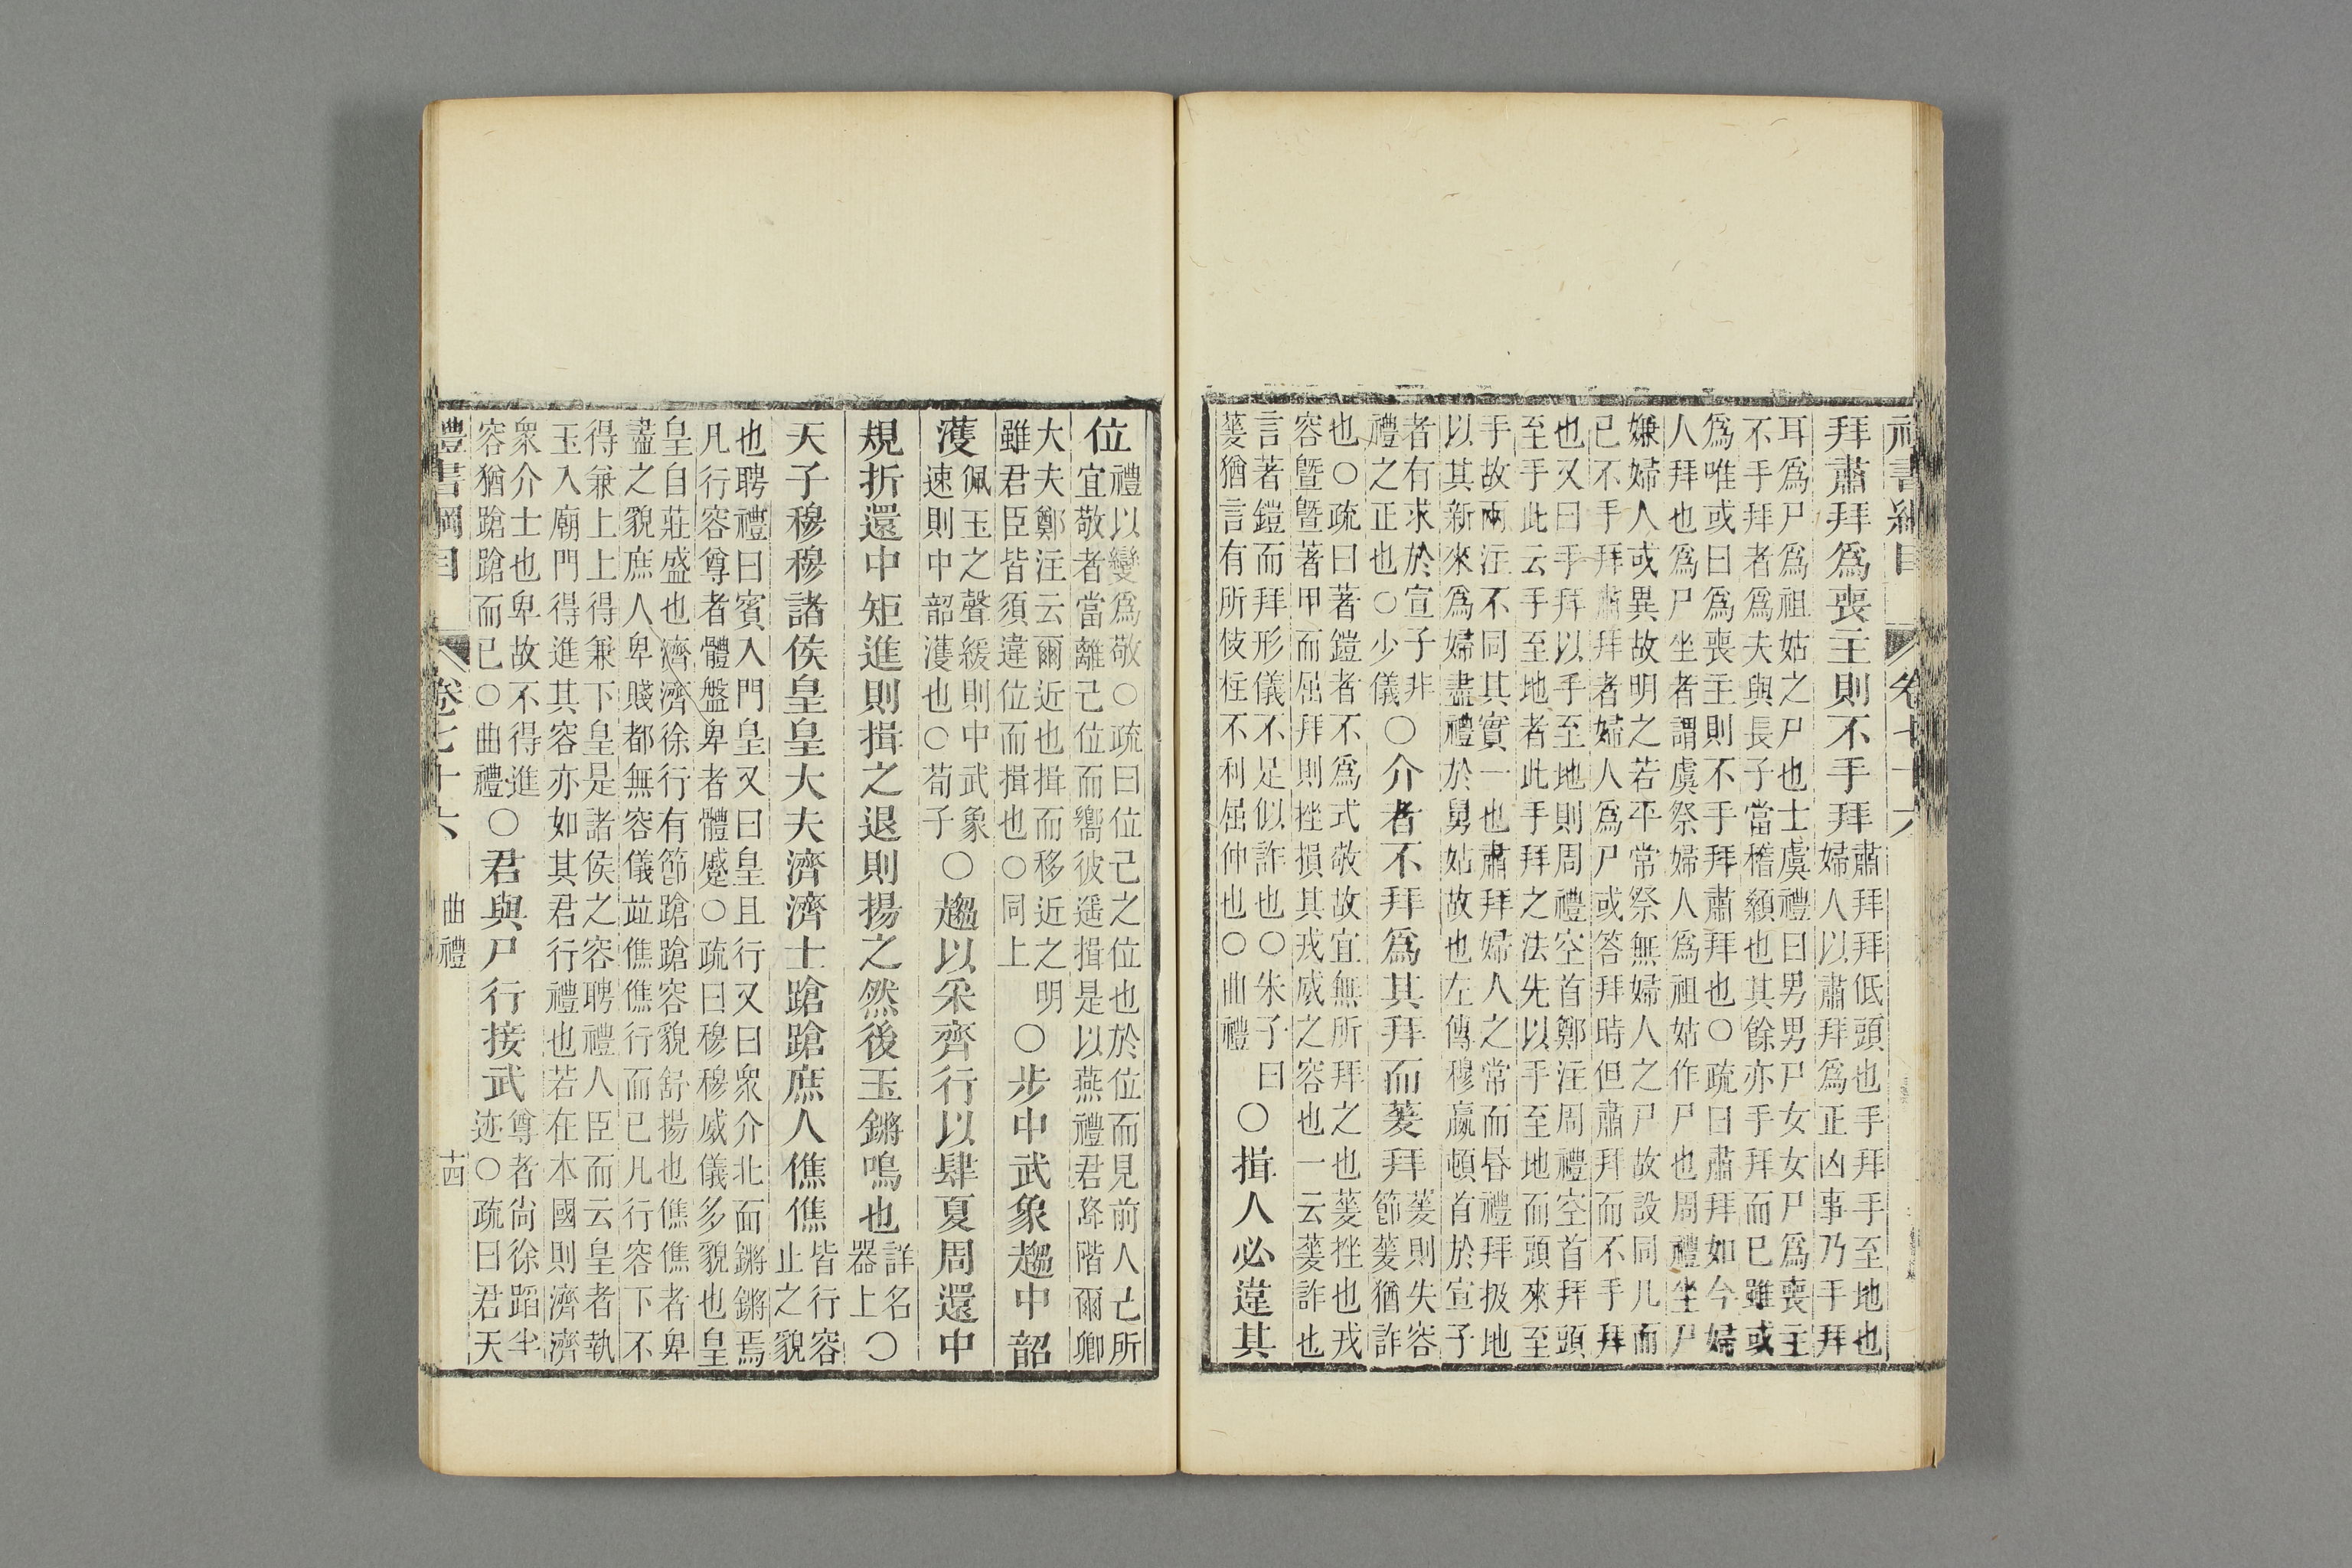 禮書綱目 卷七十六
拜肅拜爲喪主則不手拜 肅拜拜低頭也手拜手至地也
婦人以肅拜爲正凶事乃手拜
耳爲尸爲祖姑之尸也士虞禮曰男男尸女女尸爲喪主
不手拜者爲夫與長子當稽顙也其餘亦手拜而已雖或
爲唯或曰爲喪主則不手拜肅拜也○疏曰肅拜如今婦
人拜也爲尸坐者謂虞祭婦人爲祖姑作尸也周禮坐尸
嫌婦人或異故明之若平常祭無婦人之尸故設同几而
已不手拜肅拜者婦人爲尸或答拜時但肅拜而不手拜
也又曰手拜以手至地則周禮空首鄭注周禮空首拜頭
至手此云手至地者此手拜之法先以手至地而頭來至
手故兩注不同其實一也肅拜婦人之常而昏禮拜扱地
以其新來爲婦盡禮於舅姑故也左傳穆嬴頓首於宣子
者有求於宣子非
禮之正也○少儀
○介者不拜爲其拜而蓌拜 蓌則失容
節蓌猶詐
也○疏曰著鎧者不爲式敬故宜無所拜之也蓌挫也戎
容曁曁著甲而屈拜則挫損其戎威之容也一云蓌詐也
言著鎧而拜形儀不足似詐也○朱子曰
蓌猶言有所枝柱不利屈伸也○曲禮
○揖人必違其
位 禮以變爲敬○疏曰位己之位也於位而見前人己所
宜敬者當離己位而嚮彼遥揖是以燕禮君降階爾卿
大夫鄭注云爾近也揖而移近之明
雖君臣皆須違位而揖也○同上
○步中武象趨中韶
濩 佩玉之聲緩則中武象
速則中韶濩也○荀子
○趨以采齊行以肆夏周還中
規折還中矩進則揖之退則揚之然後玉鏘鳴也 詳名
器上○
天子穆穆諸侯皇皇大夫濟濟士蹌蹌庶人僬僬 皆行容
止之貌
也聘禮曰賓入門皇又曰皇且行又曰衆介北面鏘鏘焉
凡行容尊者體盤卑者體蹙○疏曰穆穆威儀多貌也皇
皇自莊盛也濟濟徐行有節蹌蹌容貌舒揚也僬僬者卑
盡之貌庶人卑賤都無容儀竝僬僬行而已凡行容下不
得兼上上得兼下皇是諸侯之容聘禮人臣而云皇者執
玉入廟門得進其容亦如其君行禮也若在本國則濟濟
衆介士也卑故不得進
容猶蹌蹌而已○曲禮
○君與尸行接武 尊者尚徐蹈半
迹○疏曰君天
禮書綱目 卷七十六 曲禮 十四